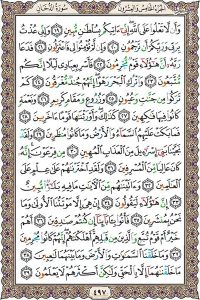 الجزء الخامس والعشرون سورة الدخان
وَأَن لَّا تَعْلُوا۟ عَلَى ٱللَّهِ إِنِّىٓ ءَاتِيكُم بِسُلْطَٰنٍ مُّبِينٍ ١٩ وَإِنِّى عُذْتُ
بِرَبِّى وَرَبِّكُمْ أَن تَرْجُمُونِ ٢٠ وَإِن لَّمْ تُؤْمِنُوا۟ لِى فَٱعْتَزِلُونِ ٢١ فَدَعَا
رَبَّهُۥٓ أَنَّ هَٰٓؤُلَآءِ قَوْمٌ مُّجْرِمُونَ ٢٢ فَأَسْرِ بِعِبَادِى لَيْلًا إِنَّكُم
مُّتَّبَعُونَ ٢٣ وَٱتْرُكِ ٱلْبَحْرَ رَهْوًا إِنَّهُمْ جُندٌ مُّغْرَقُونَ ٢٤ كَمْ
تَرَكُوا۟ مِن جَنَّٰتٍ وَعُيُونٍ ٢٥ وَزُرُوعٍ وَمَقَامٍ كَرِيمٍ ٢٦ وَنَعْمَةٍ
كَانُوا۟ فِيهَا فَٰكِهِينَ ٢٧ كَذَٰلِكَ وَأَوْرَثْنَٰهَا قَوْمًا ءَاخَرِينَ ٢٨
فَمَا بَكَتْ عَلَيْهِمُ ٱلسَّمَآءُ وَٱلْأَرْضُ وَمَا كَانُوا۟ مُنظَرِينَ ٢٩ وَلَقَدْ
نَجَّيْنَا بَنِىٓ إِسْرَٰٓءِيلَ مِنَ ٱلْعَذَابِ ٱلْمُهِينِ ٣٠ مِن فِرْعَوْنَ إِنَّهُۥ
كَانَ عَالِيًا مِّنَ ٱلْمُسْرِفِينَ ٣١ وَلَقَدِ ٱخْتَرْنَٰهُمْ عَلَىٰ عِلْمٍ عَلَى
ٱلْعَٰلَمِينَ ٣٢ وَءَاتَيْنَٰهُم مِّنَ ٱلْءَايَٰتِ مَا فِيهِ بَلَٰٓؤٌا۟ مُّبِينٌ ٣٣
إِنَّ هَٰٓؤُلَآءِ لَيَقُولُونَ ٣٤ إِنْ هِىَ إِلَّا مَوْتَتُنَا ٱلْأُولَىٰ وَمَا
نَحْنُ بِمُنشَرِينَ ٣٥ فَأْتُوا۟ بِـَٔابَآئِنَآ إِن كُنتُمْ صَٰدِقِينَ ٣٦ أَهُمْ
خَيْرٌ أَمْ قَوْمُ تُبَّعٍ وَٱلَّذِينَ مِن قَبْلِهِمْ أَهْلَكْنَٰهُمْ إِنَّهُمْ كَانُوا۟ مُجْرِمِينَ
٣٧ وَمَا خَلَقْنَا ٱلسَّمَٰوَٰتِ وَٱلْأَرْضَ وَمَا بَيْنَهُمَا لَٰعِبِينَ ٣٨
مَا خَلَقْنَٰهُمَآ إِلَّا بِٱلْحَقِّ وَلَٰكِنَّ أَكْثَرَهُمْ لَا يَعْلَمُونَ ٣٩
٤٩٧